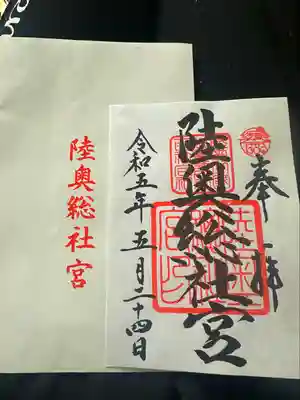 陸奥総社宮
奉拝
陸奥総社宮
令和五年五月二十四日